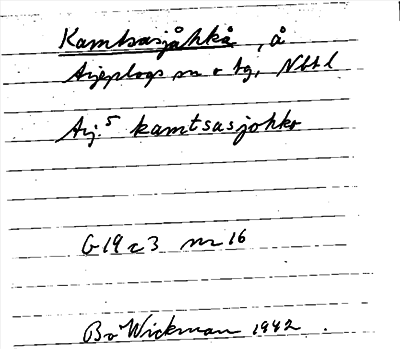 Kamtsasjåhkå, å
Arjeplogs sn o tg, Nbtl
Arj.5 kamtsasjohko
G 19 c 3 nr 16
Bo Wickman 1942.